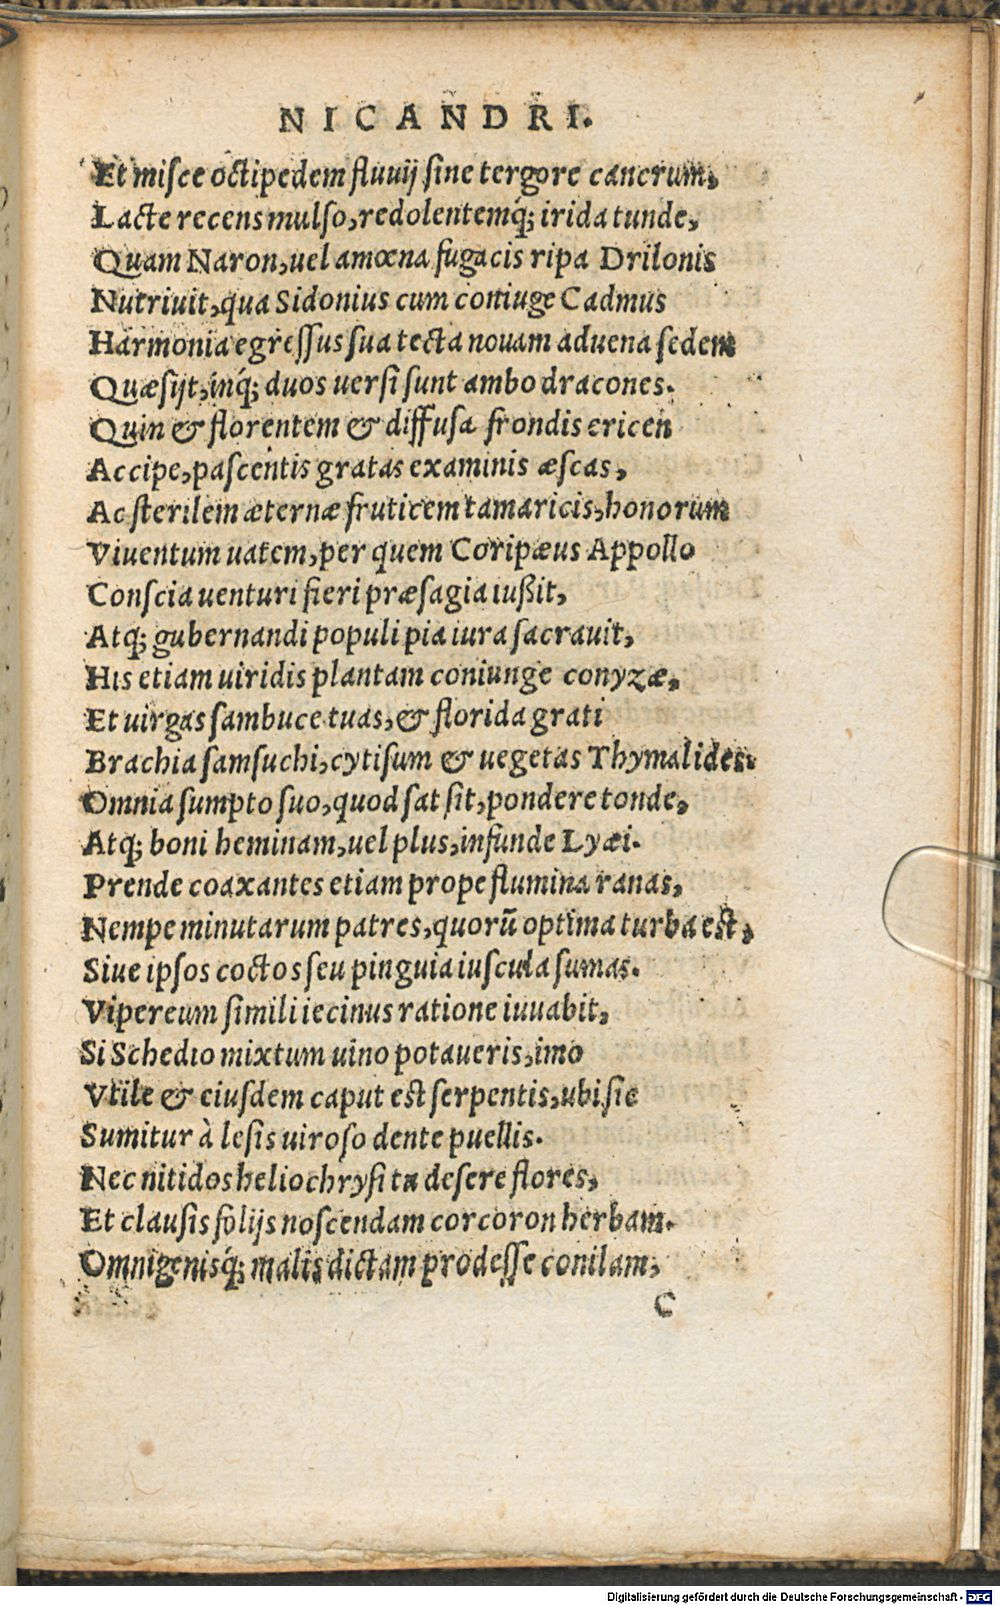 NICANDRI.
Et misce octipedem fluuij sine tergore cancrum,
Lacte recens mulso, redolentemq́; irida tunde,
Quam Naron, uel amœna fugacis ripa Drilonis
Nutriuit, qua Sidonius cum coniuge Cadmus
Harmonia egressus sua tecta nouam aduena sedem
Quæsijt, inq́; duos uersi sunt ambo dracones.
Quin & florentem & diffusa frondis ericen
Accipe, pascentis gratas examinis æscas,
Ac sterilem æternæ fruticem tamaricis, honorum
Viuentum uatem, per quem Coripæus Appollo
Conscia uenturi fieri præsagia iußit,
Atq; gubernandi populi pia iura sacrauit,
His etiam uiridis plantam coniunge conyzæ,
Et uirgas sambuce tuas, & florida grati
Brachia samsuchi, cytisum & uegetas Thymalides.
Omnia sumpto suo, quod sat sit, pondere tonde,
Atq; boni heminam, uel plus, infunde Lyæi.
Prende coaxantes etiam prope flumina ranas,
Nempe minutarum patres, quorũ optima turba est,
Siue ipsos coctos seu pinguia iuscula sumas.
Vipereum simili iecinus ratione iuuabit,
Si Schedio mixtum uino potaueris, imo
Vtile & eiusdem caput est serpentis, ubi sic
Sumitur à lesis uiroso dente puellis.
Nec nitidos heliochrysi tu desere flores,
Et clausis folijs noscendam corcoron herbam.
Omnigenisq́; malis dictam prodesse conilam,
C
Digitalisierung gefördert durch die Deutsche Forschungsgemeinschaft - DFG